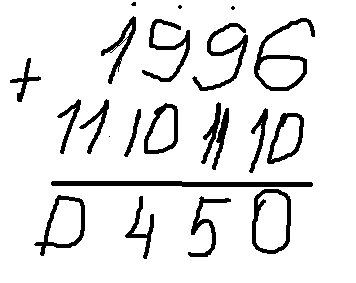 1996
+
11 10 11 10
D 4 5 0